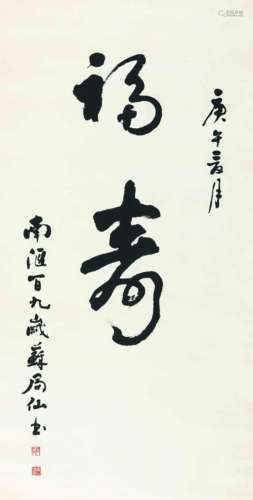 庚午夏月
福壽
南滙百九歲蘇局仙书